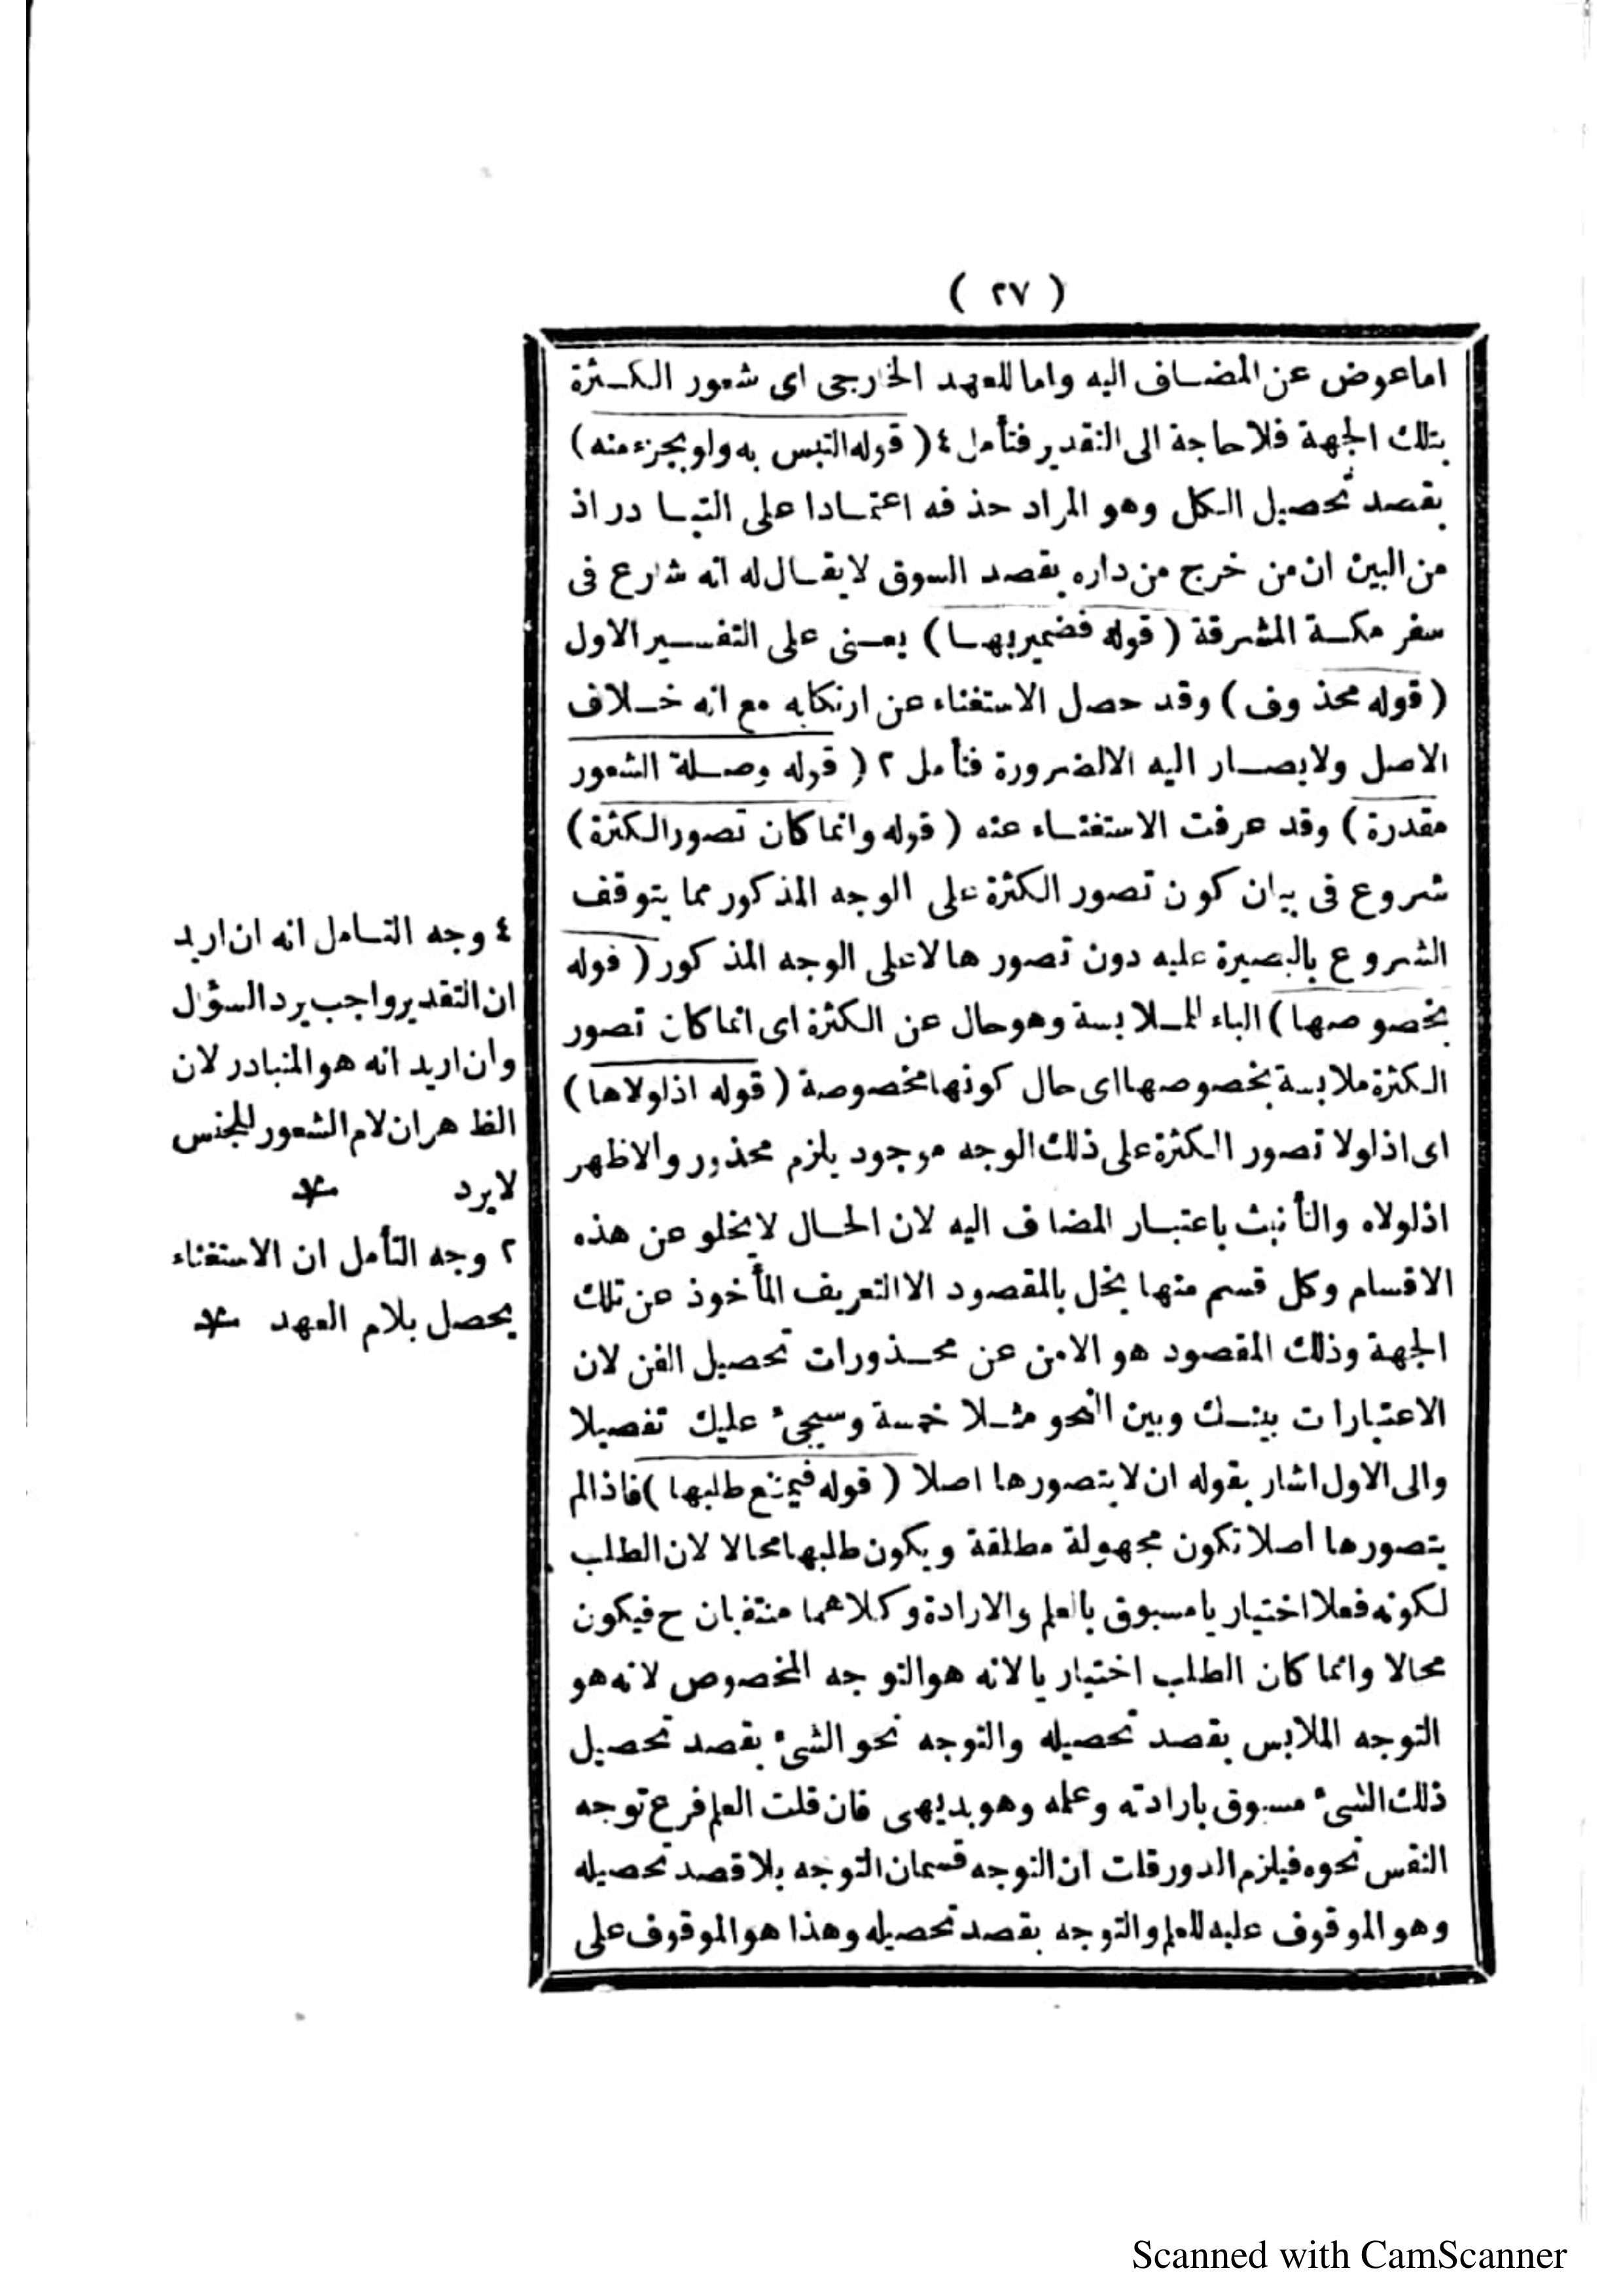 ( ٢٧ )
اما عوض عن المضاف اليه واما للعهد الخارجى اى شعور الكثرة
بتلك الجهة فلا حاجة الى التقدير فتأمل ٤ ( قوله التبس به ولو بجزء منه )
بقصد تحصيل الكل وهو المراد حذفه اعتمادا على التبادر اذ
من البين ان من خرج من داره بقصد السوق لا يقال له انه شارع فى
سفر مكة المشرفة ( قوله فضمير بها ) يعنى على التفسير الاول
( قوله محذوف ) وقد حصل الاستغناء عن ارتكابه مع انه خلاف
الاصل ولا يصار اليه الا لضرورة فتأمل ٢ ( قوله وصلة الشعور
مقدرة ) وقد عرفت الاستغناء عنه ( قوله وانما كان تصور الكثرة )
شروع فى بيان كون تصور الكثرة على الوجه المذكور مما يتوقف
الشروع بالبصيرة عليه دون تصورها لا على الوجه المذكور ( قوله
بخصوصها ) الباء للملابسة وهو حال عن الكثرة اى انما كان تصور
الكثرة ملابسة بخصوصها اى حال كونها مخصوصة ( قوله اذ لولاها )
اى اذ لولا تصور الكثرة على ذلك الوجه موجود يلزم محذور والاظهر
اذ لولاه والتأنيث باعتبار المضاف اليه لان الحال لا يخلو عن هذه
الاقسام وكل قسم منها يخل بالمقصود الا التعريف المأخوذ عن تلك
الجهة وذلك المقصود هو الامن عن محذورات تحصيل الفن لان
الاعتبارات بينك وبين النحو مثلا خمسة وسيجئ عليك تفصيلا
والى الاول اشار بقوله ان لا يتصورها اصلا ( قوله فيمتنع طلبها ) فاذا لم
يتصورها اصلا تكون مجهولة مطلقة ويكون طلبها محالا لان الطلب
لكونه فعلا اختياريا مسبوق بالعلم والارادة وكلاهما منتفيان ح فيكون
محالا وانما كان الطلب اختياريا لانه هو التوجه المخصوص لانه هو
التوجه الملابس بقصد تحصيله والتوجه نحو الشئ بقصد تحصيل
ذلك الشئ مسبوق بارادته وعلمه وهو بديهى فان قلت العلم فرع توجه
النفس نحوه فيلزم الدور قلت ان التوجه قسمان التوجه بلا قصد تحصيله
وهو الموقوف عليه للعلم والتوجه بقصد تحصيله وهذا هو الموقوف على
٤ وجه التامل انه ان اريد
ان التقدير واجب يرد السؤال
وان اريد انه هو المتبادر لان
الظاهر ان لام الشعور للجنس
لا يرد
٢ وجه التأمل ان الاستغناء
يحصل بلام العهد
Scanned with CamScanner